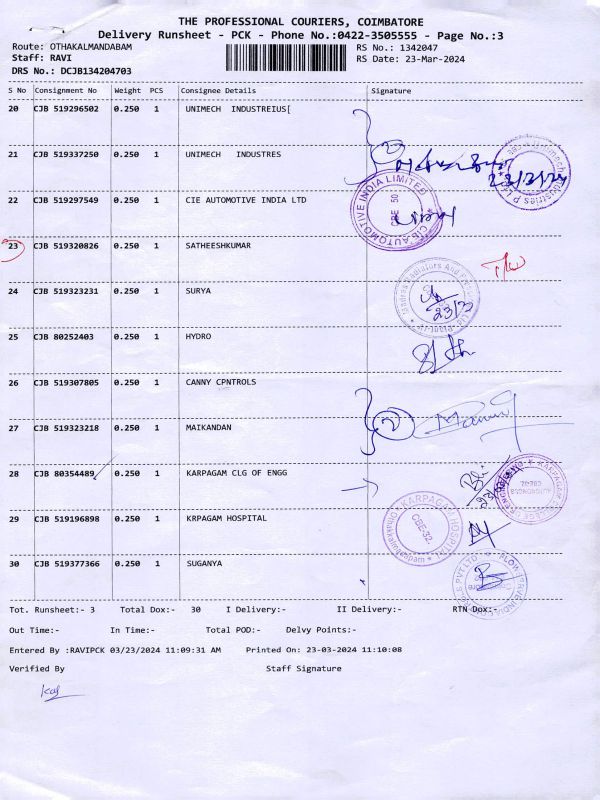 THE PROFESSIONAL COURIERS, COIMBATORE
Delivery Runsheet - PCK - Phone No.:0422-3505555 - Page No.:3
Route: OTHAKALMANDABAM RS No.: 1342047
Staff: RAVI RS Date: 23-Mar-2024
DRS No.: DCJB134204703
S No Consignment No Weight PCS Consignee Details Signature
20 CJB 519296502 0.250 1 UNIMECH INDUSTREIUS[
21 CJB 519337250 0.250 1 UNIMECH INDUSTRES
22 CJB 519297549 0.250 1 CIE AUTOMOTIVE INDIA LTD
CIE AUTOMOTIVE INDIA LIMITED
CBE 50
23 CJB 519320826 0.250 1 SATHEESHKUMAR
24 CJB 519323231 0.250 1 SURYA
23/3
25 CJB 80252403 0.250 1 HYDRO
26 CJB 519307805 0.250 1 CANNY CPNTROLS
27 CJB 519323218 0.250 1 MAIKANDAN
2
28 CJB 80354489 0.250 1 KARPAGAM CLG OF ENGG
29 CJB 519196898 0.250 1 KRPAGAM HOSPITAL
KARPAGAM HOSPITAL
CBE-32.
30 CJB 519377366 0.250 1 SUGANYA
Tot. Runsheet:- 3 Total Dox:- 30 I Delivery:- II Delivery:- RTN Dox:-
Out Time:- In Time:- Total POD:- Delvy Points:-
Entered By :RAVIPCK 03/23/2024 11:09:31 AM Printed On: 23-03-2024 11:10:08
Verified By Staff Signature